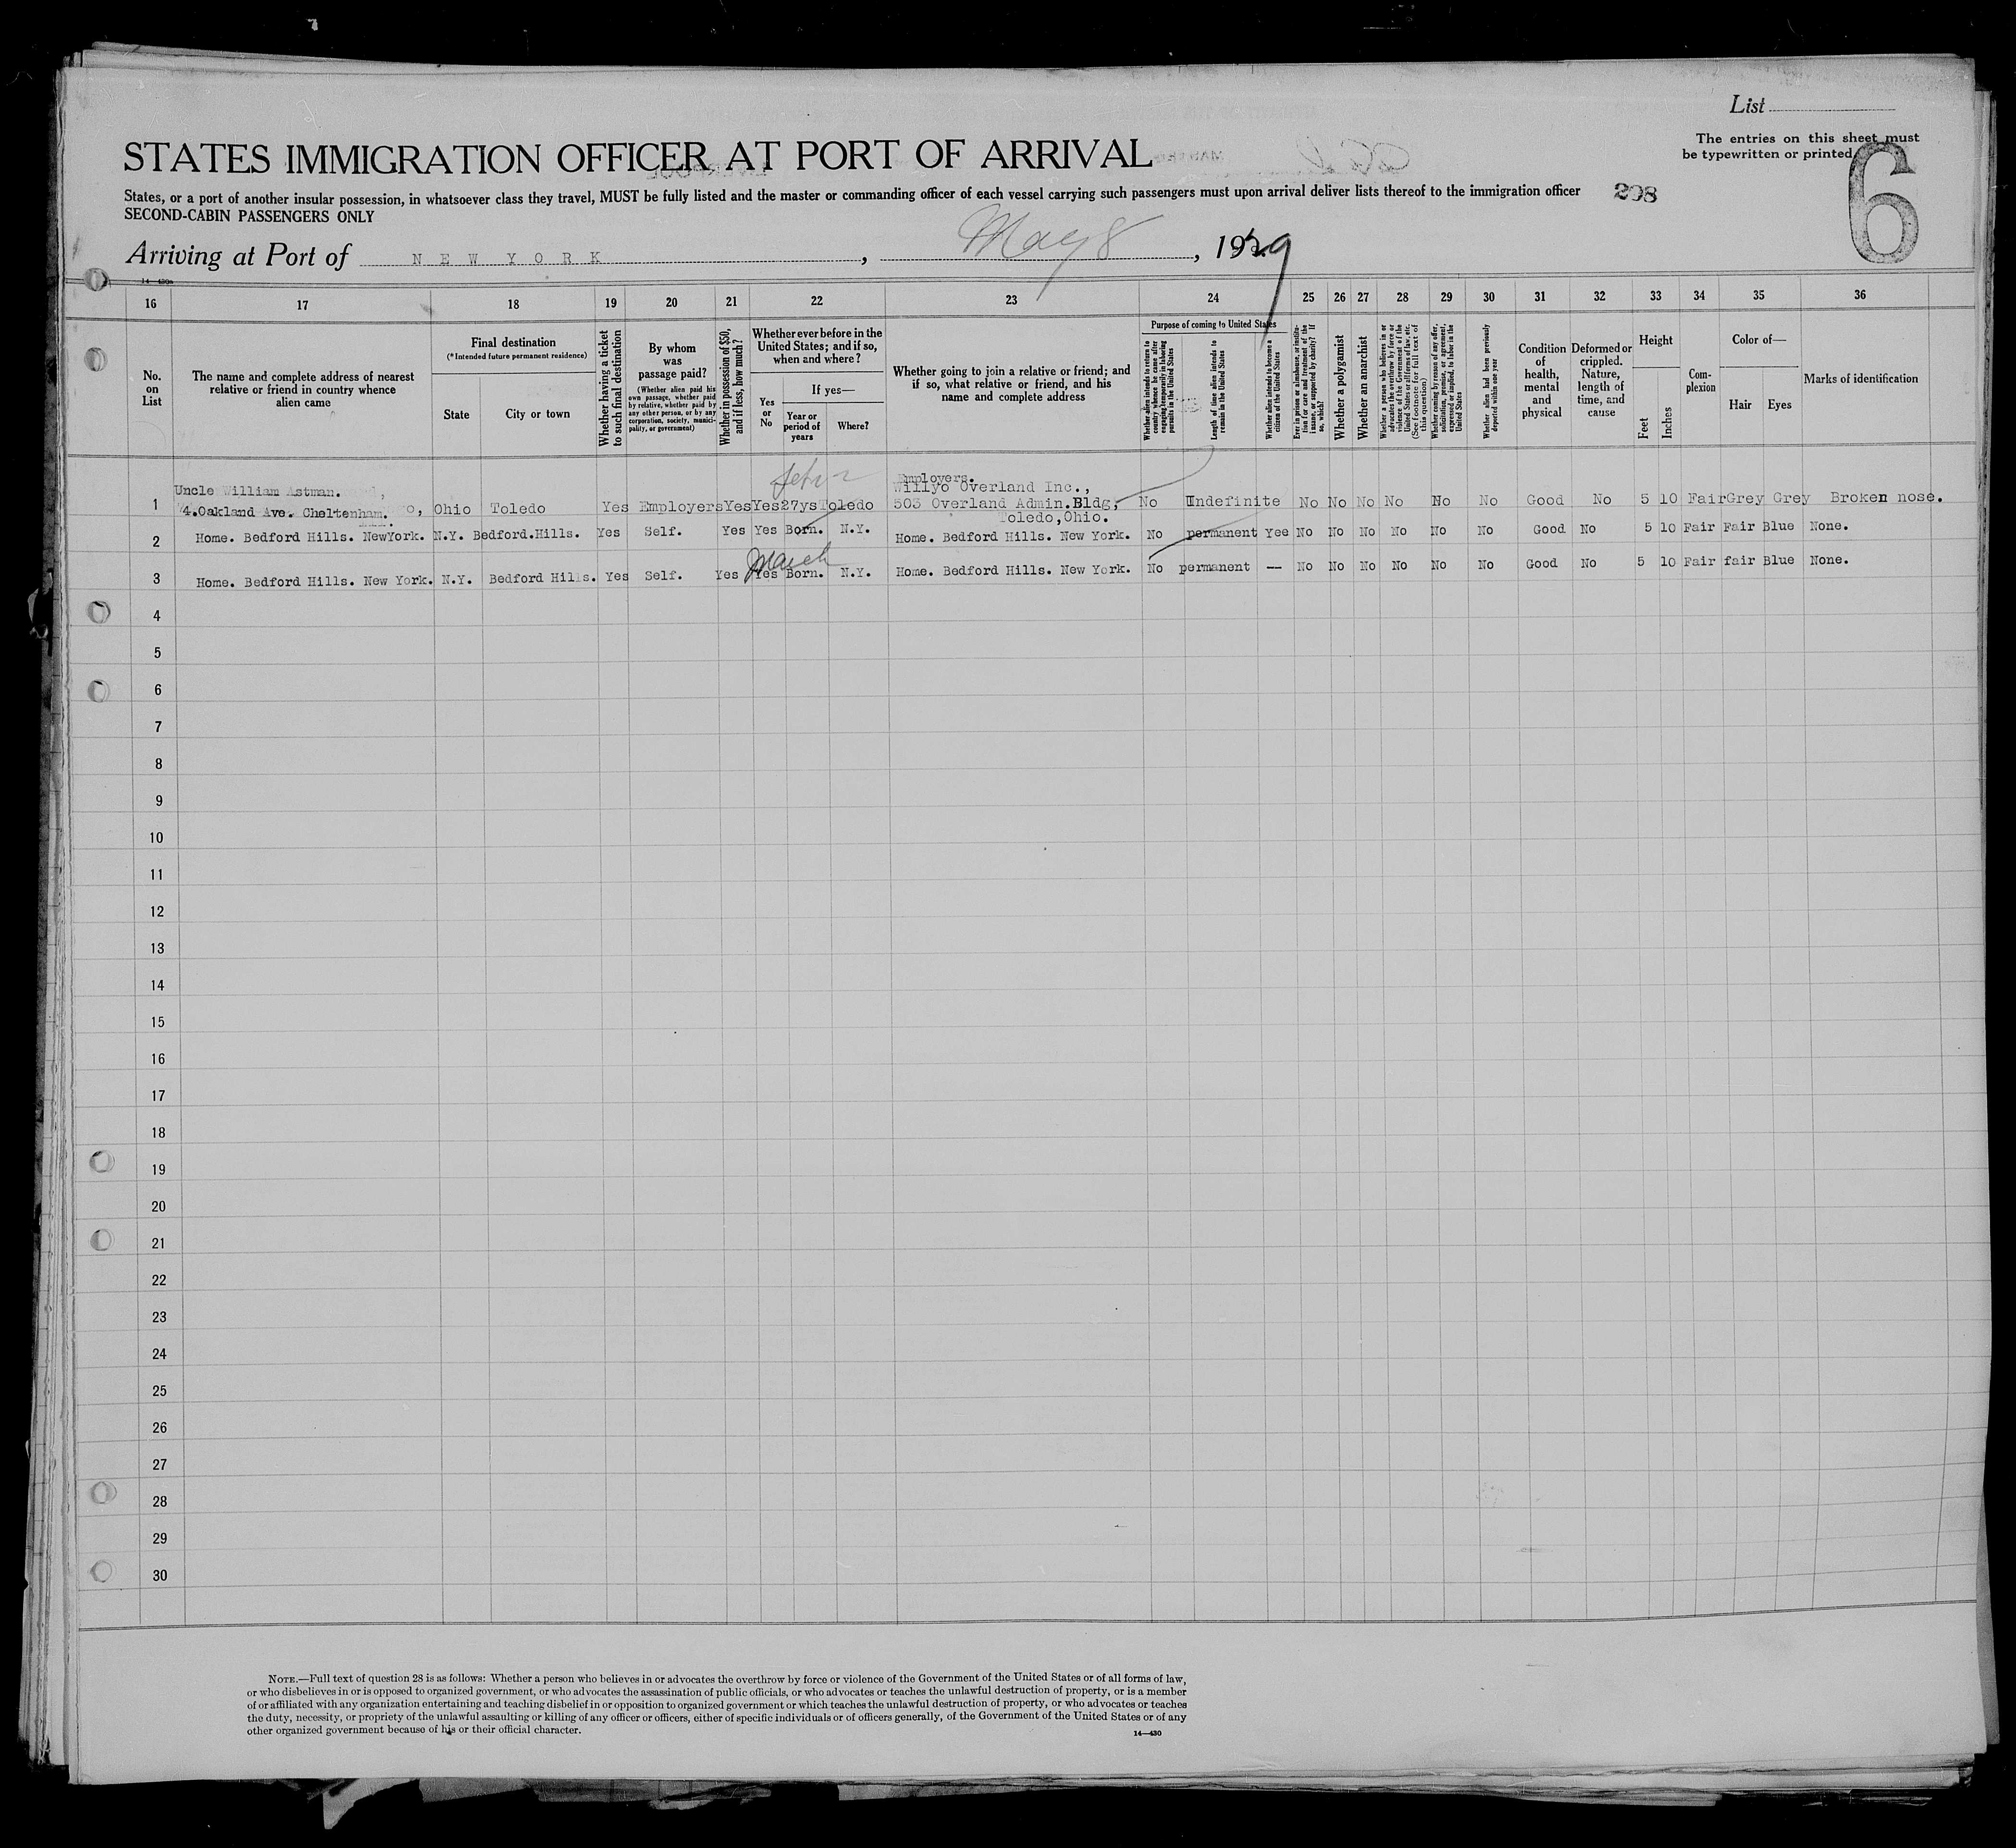 List
The entries on this sheet must
be typewritten or printed
STATES IMMIGRATION OFFICER AT PORT OF ARRIVAL
6
States, or a port of another insular possession, in whatsoever class they travel, MUST be fully listed and the master or commanding officer of each vessel carrying such passengers must upon arrival deliver lists thereof to the immigration officer
208
SECOND-CABIN PASSENGERS ONLY
Arriving at Port of NEW YORK, May 8, 1929
14—430a
16 17 18 19 20 21 22 23 24 25 26 27 28 29 30 31 32 33 34 35 36
No. on List
The name and complete address of nearest
relative or friend in country whence
alien came
Final destination
(*Intended future permanent residence)
State
City or town
Whether having a ticket
to such final destination
By whom
was
passage paid?
(Whether alien paid his
own passage, whether paid
by relative, whether paid by
any other person, or by any
corporation, society, munici-
pality, or government)
Whether in possession of $50,
and if less, how much?
Whether ever before in the
United States; and if so,
when and where?
Yes
or
No
If yes—
Year or
period of
years
Where?
Whether going to join a relative or friend; and
if so, what relative or friend, and his
name and complete address
Purpose of coming to United States
Whether alien intends to return to
country whence he came after
engaging temporarily in laboring
pursuits in the United States
Length of time alien intends to
remain in the United States
Whether alien intends to become a
citizen of the United States
Ever in prison or almshouse, or institu-
tion for care and treatment of the
insane, or supported by charity? If
so, which?
Whether a polygamist
Whether an anarchist
Whether a person who believes in or
advocates the overthrow by force or
violence of the Government of the
United States or all forms of law, etc.
(See footnote for full text of
this question)
Whether coming by reason of any offer,
solicitation, promise, or agreement,
expressed or implied, to labor in the
United States
Whether alien had been previously
deported within one year
Condition
of
health,
mental
and
physical
Deformed or
crippled.
Nature,
length of
time, and
cause
Height
Feet
Inches
Com-
plexion
Color of—
Hair
Eyes
Marks of identification
Uncle William Astman.
1 4.Oakland Ave. Cheltenham. Ohio Toledo Yes Employers Yes Yes 27ys Toledo
Employers.
Willyo Overland Inc.,
503 Overland Admin.Bldg,
Toledo,Ohio.
No Indefinite No No No No No No Good No 5 10 Fair Grey Grey Broken nose.
2 Home. Bedford Hills. NewYork. N.Y. Bedford.Hills. Yes Self. Yes Yes Born. N.Y. Home. Bedford Hills. New York. No permanent Yee No No No No No No Good No 5 10 Fair Fair Blue None.
March
3 Home. Bedford Hills. New York. N.Y. Bedford Hills. Yes Self. Yes Yes Born. N.Y. Home. Bedford Hills. New York. No permanent -- No No No No No No Good No 5 10 Fair fair Blue None.
4
5
6
7
8
9
10
11
12
13
14
15
16
17
18
19
20
21
22
23
24
25
26
27
28
29
30
NOTE.—Full text of question 28 is as follows: Whether a person who believes in or advocates the overthrow by force or violence of the Government of the United States or of all forms of law,
or who disbelieves in or is opposed to organized government, or who advocates the assassination of public officials, or who advocates or teaches the unlawful destruction of property, or is a member
of or affiliated with any organization entertaining and teaching disbelief in or opposition to organized government or which teaches the unlawful destruction of property, or who advocates or teaches
the duty, necessity, or propriety of the unlawful assaulting or killing of any officer or officers, either of specific individuals or of officers generally, of the Government of the United States or of any
other organized government because of his or their official character.
14—430